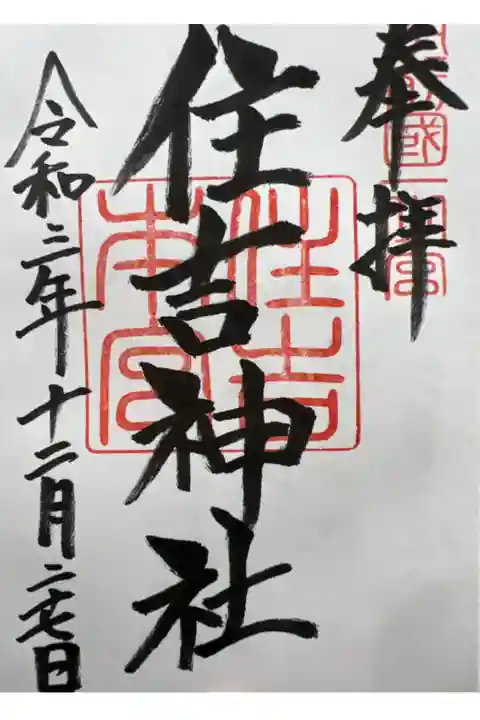 奉拝
國一宮
住吉神社
住吉
本宮
令和三年十二月二十七日